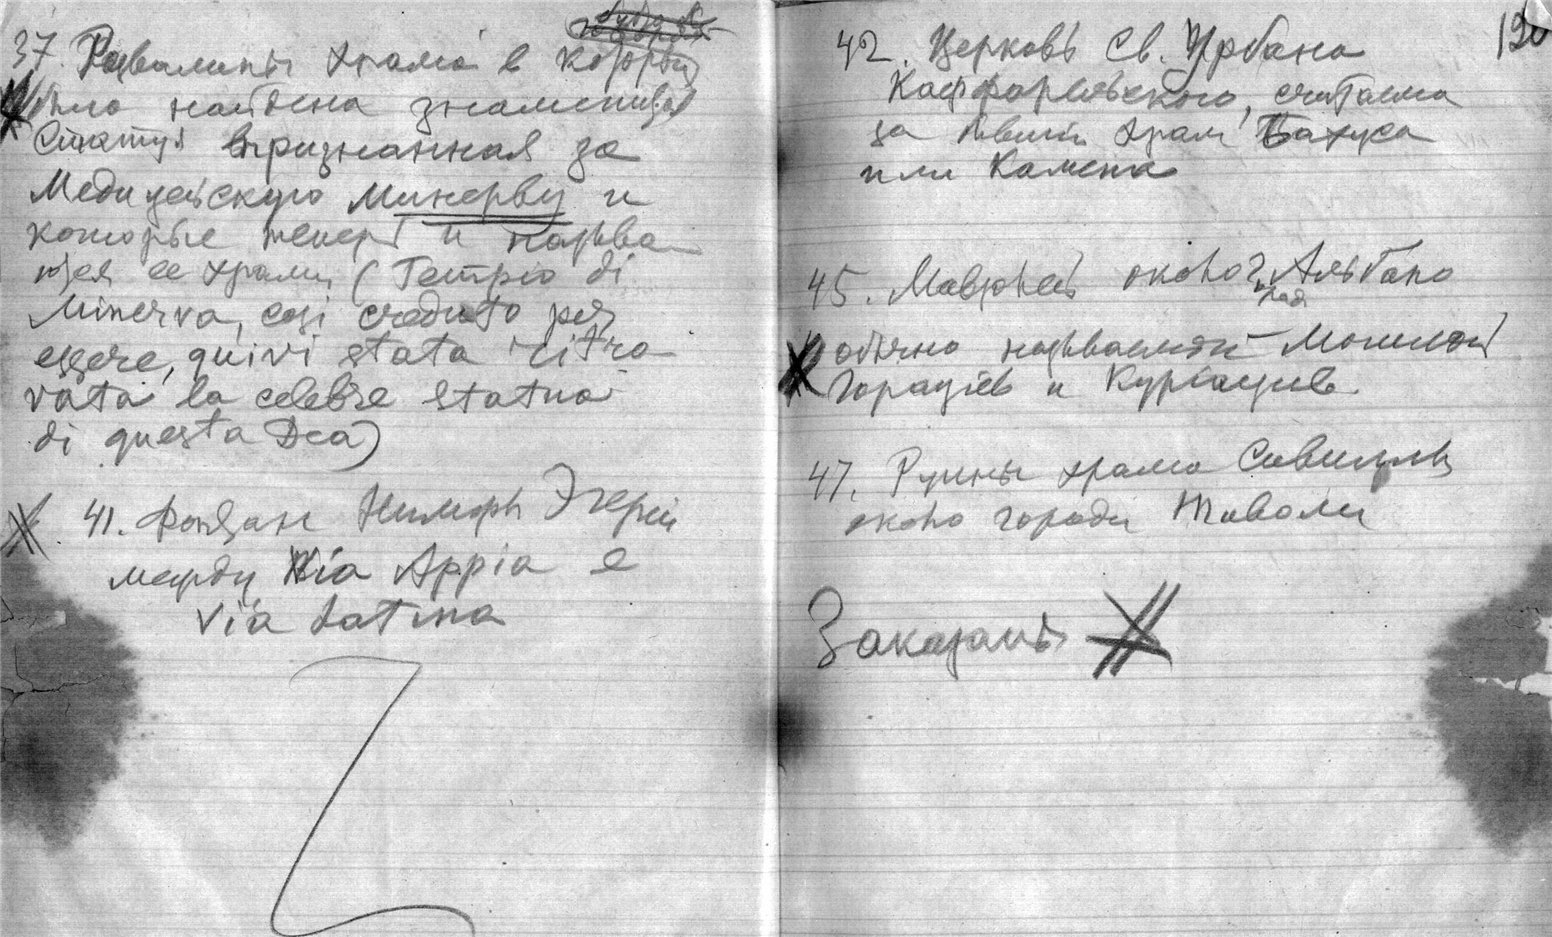 37. Развалины храма в которых
была найдена знаменитая
Статуя признанная за
Медицейскую Минерву и
которые теперь и называ
ются ее храм (Tempio di
Minerva, così creduto per
essere, quivi stata ritro
vata la celebre statua
di questa Dea)
41. Фонтан Нимфы Эгерии
между Via Appia e
Via Latina
120
42. Церковь Св. Урбана
Каффарельского, считаема
за бывший храм Бахуса
или Камена
45. Мавзолей около Альбано
обычно называемый Могилой
Горациев и Куриациев
47. Руины храма Сивиллы
около города Тиволи
Заказать